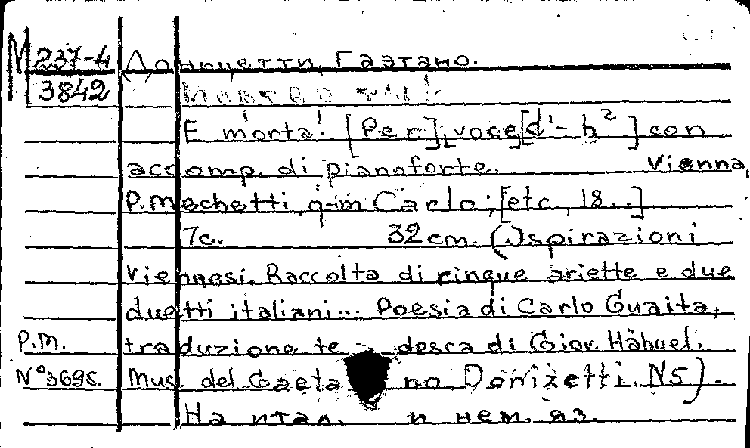 М 237-4
3842
Доницетти, Гаэтано.
E morta! [Per] voce [d'-h²] con
accomp. di pianoforte. Vienna,
P. Mechetti, q-m Carlo; [etc, 18..]
7c. 32 cm. (Ispirazioni
Viennesi. Raccolta di cinque ariette e due
duetti italiani... Poesia di Carlo Guaita,
P.M. traduzione te - desca di Giov. Hähnel.
N° 3695. Mus. del Gaeta no Donizetti. N5).
На итал. и нем. яз.